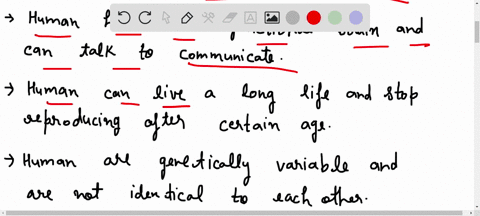 → Human brain and
can talk to communicate.
→ Human can live a long life and stop
reproducing after certain age.
→ Human are genetically variable and
are not identical to each other.